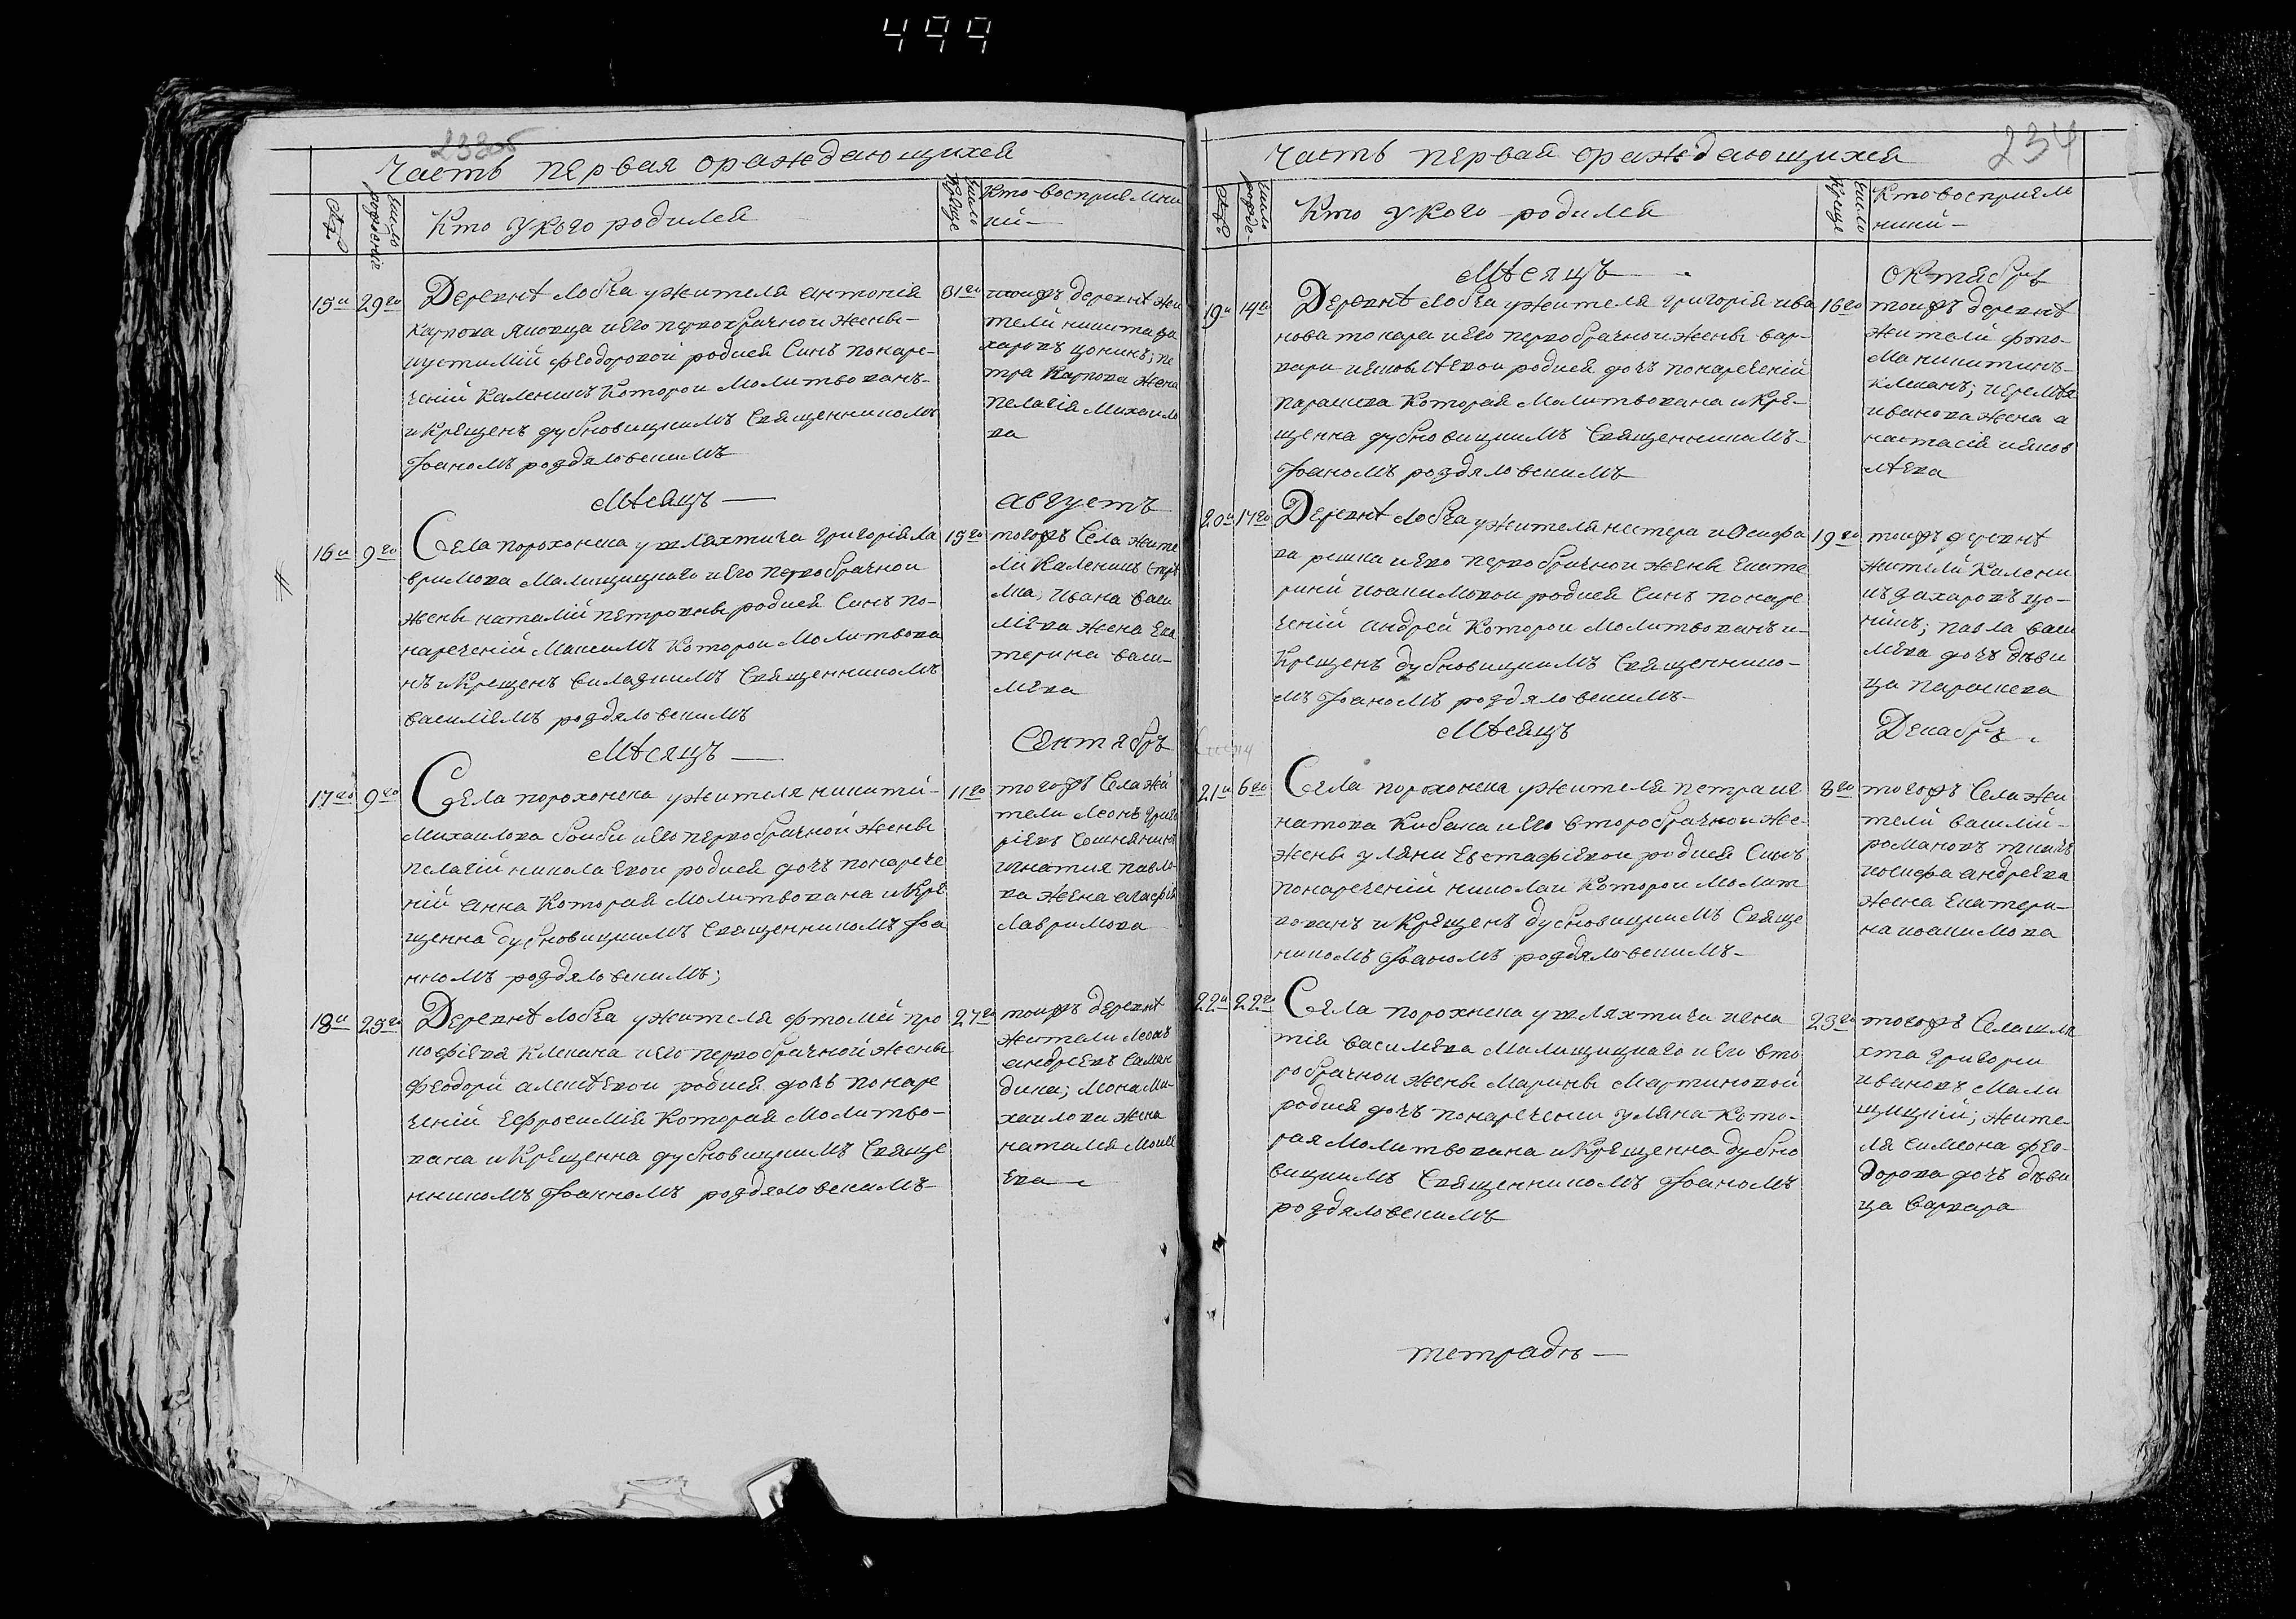 499
233об
Часть первая ораждающихся
число рождения
Кто укого родился
число креще
Кто восприемни
ки
15й 29го Деревнѣ Лобча ужителя антонія
Карпова Яковца иего первобрачной жены
иустиміи феодоровой родися Сынъ понаре-
ченій Каленикъ Которои Молитвованъ
и Крещенъ дубновицкимъ Священникомъ
Іоаномъ роздяловскимъ
31го тоижъ деревнѣ жи
тели никита за
харовъ цонинъ; пе
тра Карпова Жена
пелагія Михаило
ва
Мѣсяцъ — августъ
16й 9го Села порохонска ушляхтича григорія ла
врилова Малищицкаго иего первобрачнои
жены наталіи петровны родися Сынъ по-
нареченій Максимъ Которои Молитвова
нъ иКрещенъ складнимъ Священникомъ
василіемъ роздяловскимъ
15го тогожъ Села жите
ли Каленикъ
Ивана васи
лѣва жена Ека
терина васи-
лѣва
Мѣсяцъ — Сентябрь
17го 9го Села порохонска ужителя никити
Михаилова боиби иего первобрачной жены
пелагіи никола евои родися дочь понарече
ній анна Которая Молитвована иКре
щенна дубновицкимъ Священникомъ Іоа
нномъ роздяловскимъ;
11го тогожъ Села жи
тели Леонъ григо
ріевъ
игнатия павло
ва жена агафія
Лаврилова
18й 25го Деревнѣ Лобча ужителя фтомы про
кофіева Клекана иего первобрачной жены
феодоры алексѣевои родися дочь понаре
ченій ефросимія Которая Молитво-
вана иКрещенна дубновицкимъ Свяще
нникомъ Іоанномъ роздяловскимъ
27го тоижъ деревнѣ
жители Леонъ
андреевъ саман
дика; Леона Ми-
хаилова жена
наталія Моисе
ева
234
Часть первая ораждающихся
число рожде-
Кто укого родился
число креще
Кто восприем
ники
Мѣсяцъ октябрь
19й 14го Деревнѣ Лобча ужителя григорія ива
нова токара иего первобрачнои жены вар-
вари ияковлѣвои родися дочъ понареченій
параскева Которая Молитвована иКре-
щенна дубновицкимъ Священникомъ
Іоаномъ роздяловскимъ
16го тоижъ деревнѣ
жители фто-
ма никитинъ
клеканъ; иеремѣя
иванова жена а
настасія ияков
лѣва
20й 17го Деревнѣ Лобча ужителя нестера иосифо
ва решка иего первобрачнои жены Екате
рини иоакимовои родися Сынъ понаре
ченій андрей Которои Молитвованъ и
Крещенъ дубновицкимъ Священнико-
мъ Іоаномъ роздяловскимъ
19го тоижъ деревнѣ
жители Калени
къ захаровъ цо-
нинъ; павла васи
лѣва дочъ дѣви
ца параскева
Мѣсяцъ Декабрь
21й 6го Села порохонска ужителя петра иг
натова Кибака иего второбрачнои же-
жены уляни Евстафіевои родися Сынъ
понареченій николаи Которои Молит
вованъ иКрещенъ дубновицкимъ Свяще
никомъ Іоаномъ роздяловскимъ
8го тогожъ Села жи
тели василій
романовъ
иосифа андреева
жена Екатери-
на иоакимова
22й 22го Села порохнска ушляхтича игна
тія василѣва Малищицкаго иего вто
робрачнои жены Марины Мартиновой
родися дочъ понаречении уляна Кото-
рая Молитвована иКрещенна дубно
вицкимъ Священникомъ Іоаномъ
роздяловскимъ
23го тогожъ Села шля
хта григории
ивановъ Мали
щицкій; жите-
ля симеона фео-
дорова дочъ дѣви
ца варвара
тетрадь